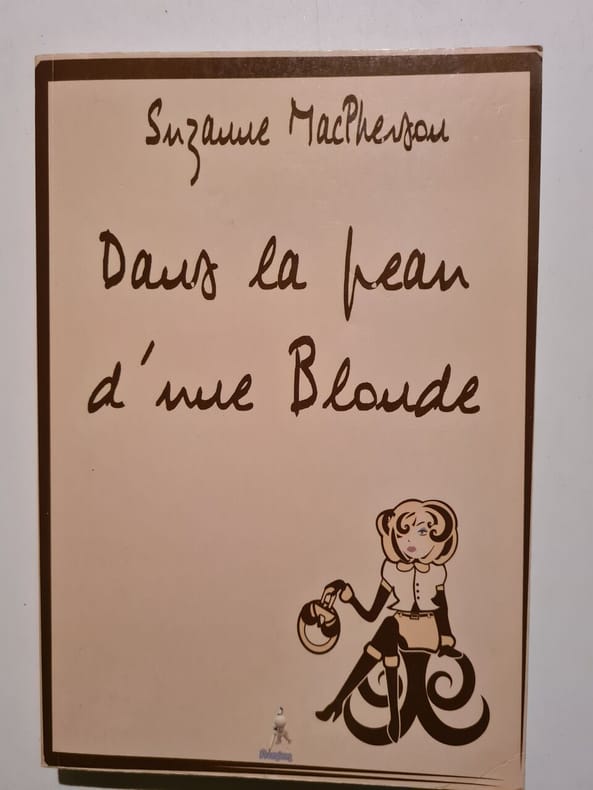 Suzanne MacPherson
Dans la peau
d'une Blonde